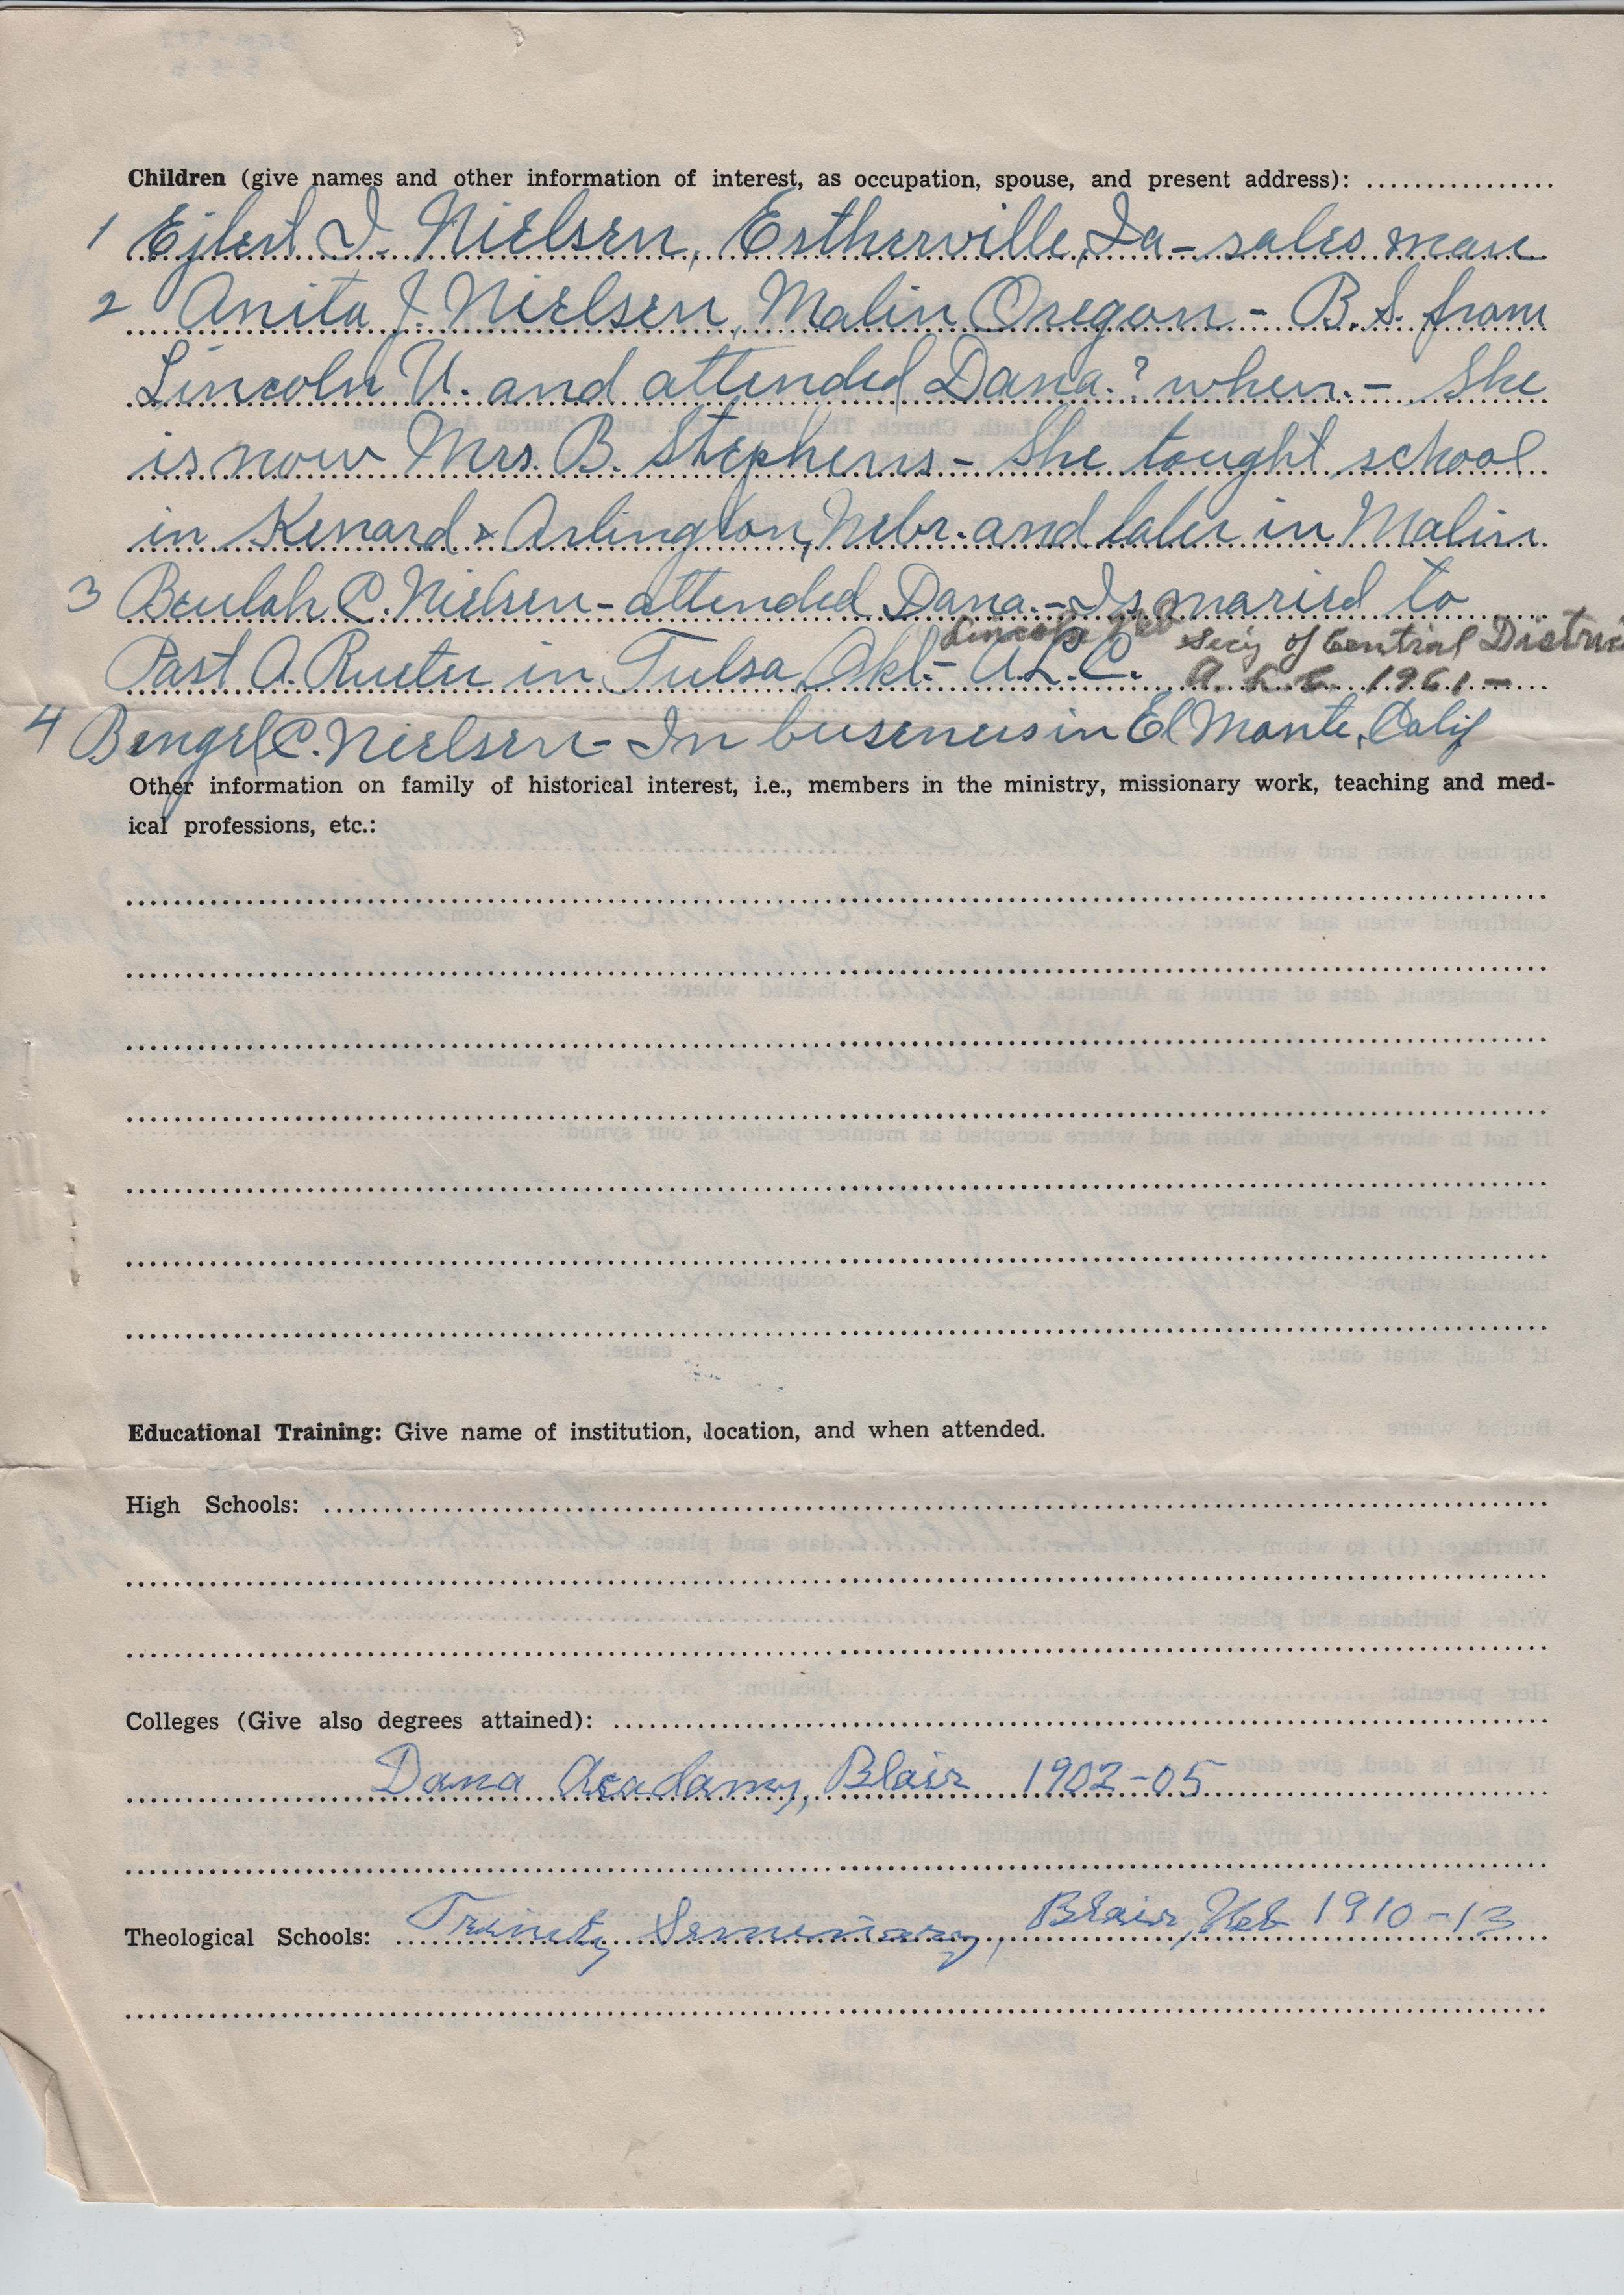 Children (give names and other information of interest, as occupation, spouse, and present address):
1 Ejlert I. Nielsen, Estherville, Ia - sales man
2 Anita J. Nielsen, Malin Oregon - B.S. from
Lincoln U. and attended Dana. ? when. - She
is now Mrs. B. Stephens - She tought school
in Kenard & Arlington, Nebr. and later in Malin.
3 Beulah C. Nielsen - attended Dana. - Is maried to
Lincoln Neb Sec'y of Central District
Past A. Rueter in Tulsa, Okl. - A.L.C. A.L.C. 1961 -
4 Bengel C. Nielsen - In buseness in El Monte, Calif
Other information on family of historical interest, i.e., members in the ministry, missionary work, teaching and med-
ical professions, etc.:
Educational Training: Give name of institution, location, and when attended.
High Schools:
Colleges (Give also degrees attained):
Dana Acadamy, Blair 1902-05
Theological Schools: Trinity Semenary, Blair, Neb 1910-13